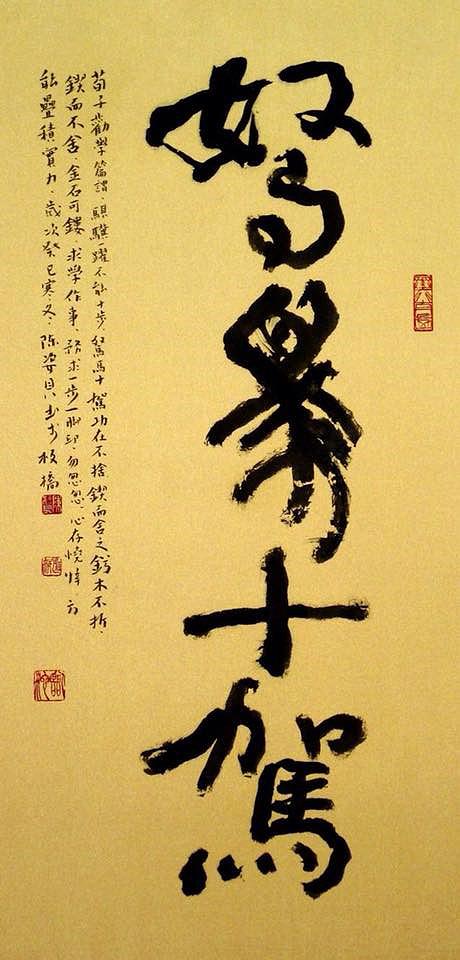 駑馬十駕
荀子勸學篇謂、騏驥一躍不能十步、駑馬十駕功在不捨、鍥而舍之朽木不折、
鍥而不舍、金石可鏤、求學作事、求一步一腳印、勿忽忽、心存僥倖、方
能疊積實力、歲次癸巳寒冬、陳姿貝書於板橋